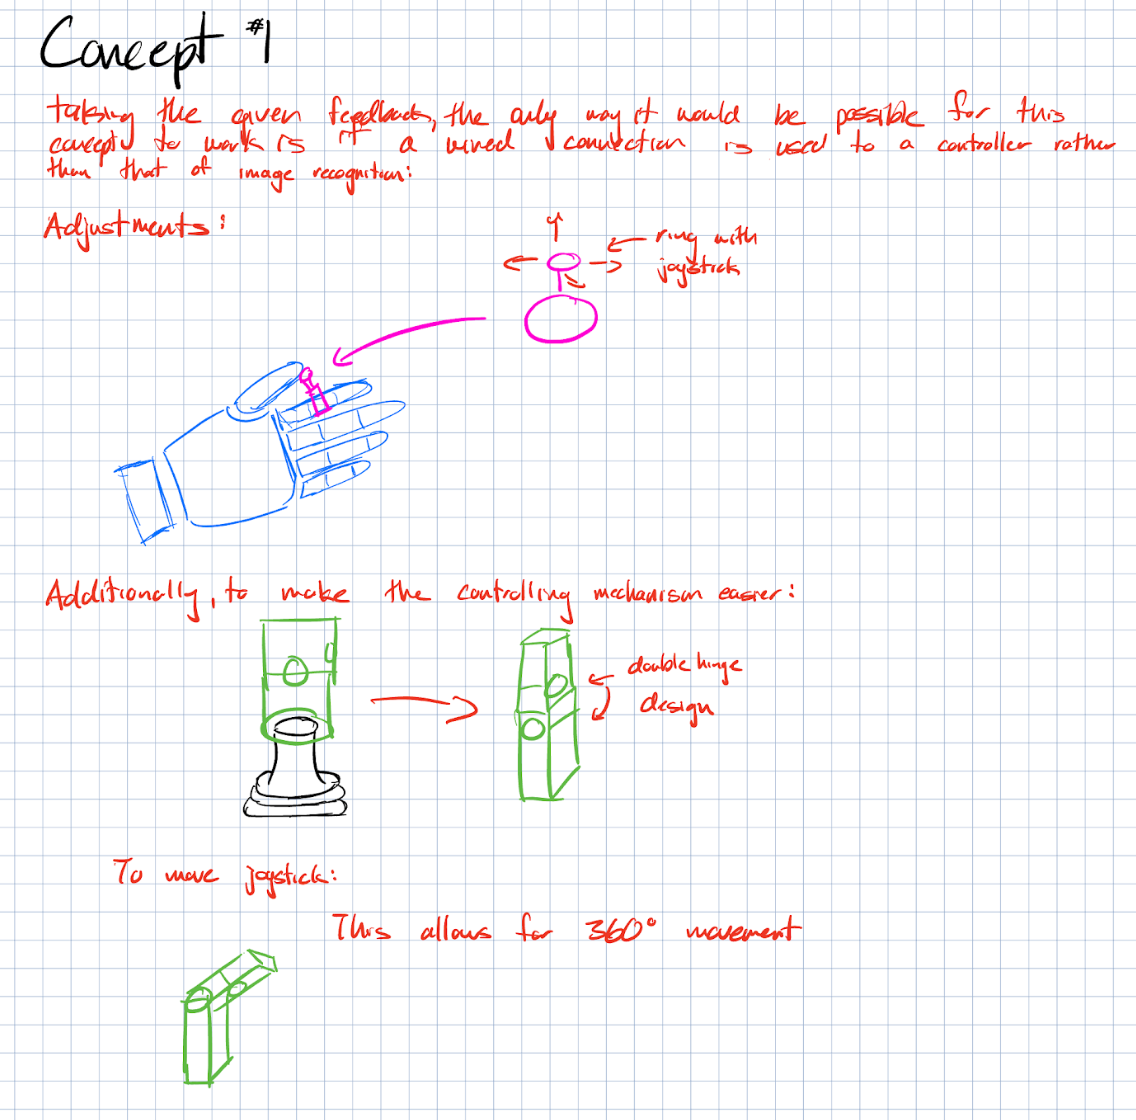 Concept #1
taking the given feedback, the only way it would be possible for this
concept to work is if a wired connection is used to a controller rather
than that of image recognition:
Adjustments:
ring with
joystick
Additionally, to make the controlling mechanism easier:
double hinge
design
To move joystick:
This allows for 360° movement